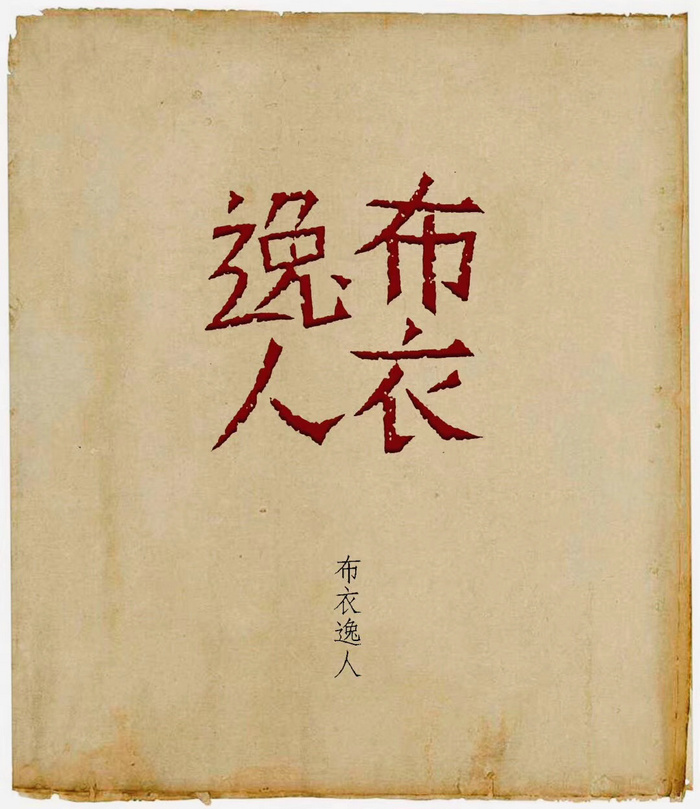 布衣
逸人
布衣逸人